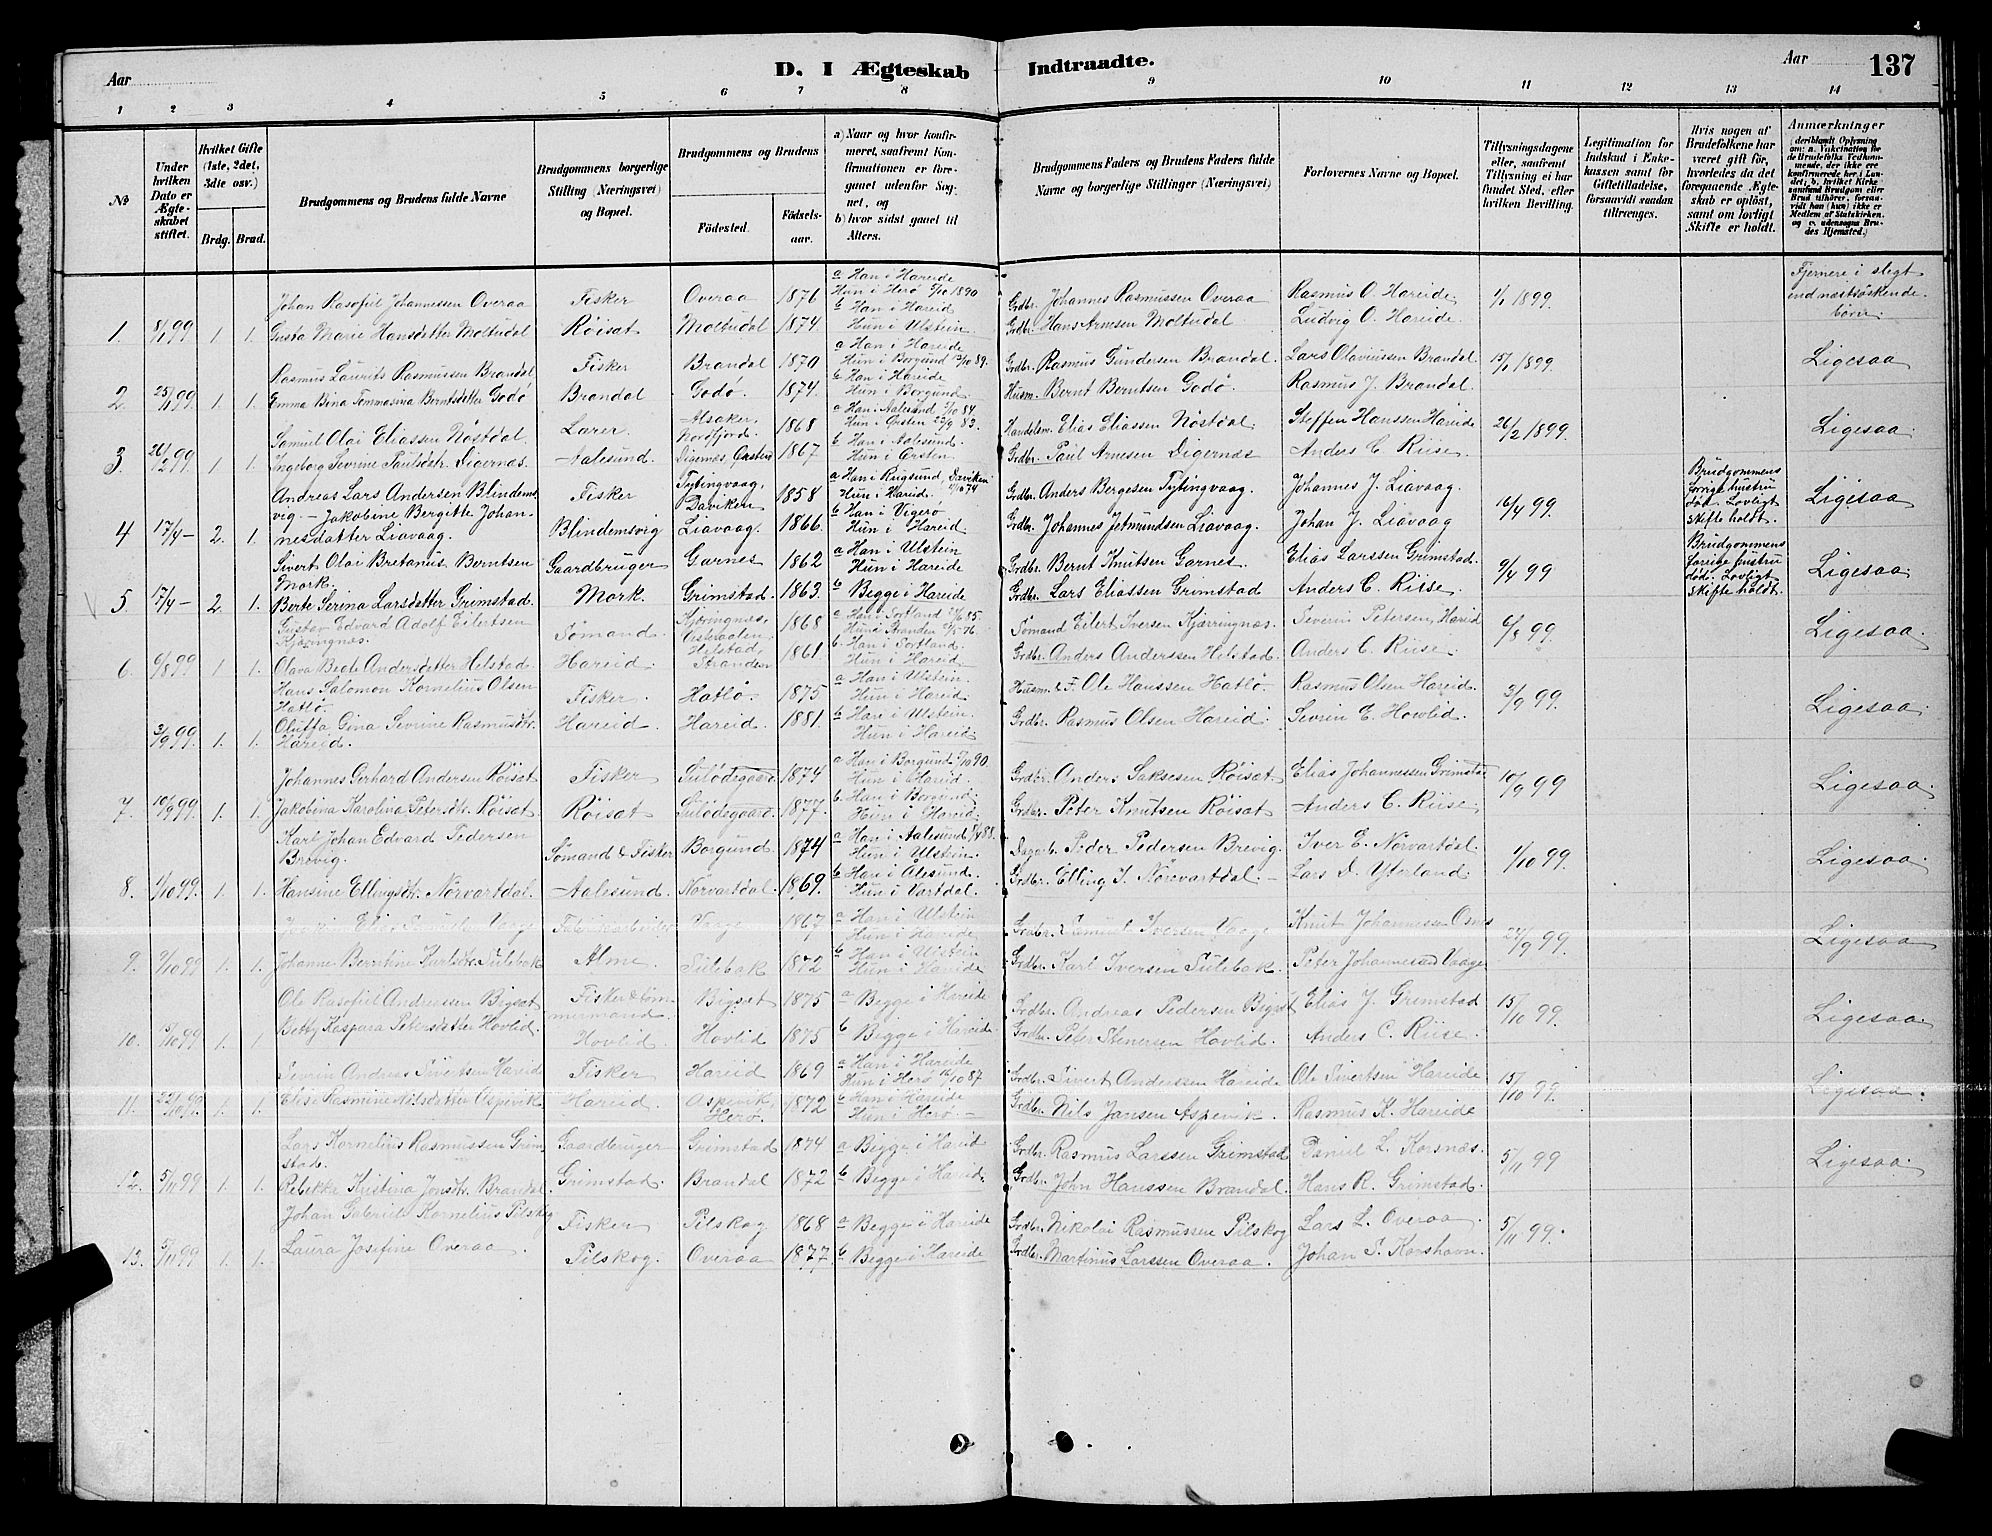 Aar
D. I Ægteskab Indtraadte.
Aar
137
1 2 3 4 5 6 7 8 9 10 11 12 13 14
No
Under hvilken Dato er Ægteskabet stiftet.
Hvilket Gifte (1ste, 2det, 3die osv.)
Brdg. Brud.
Brudgommens og Brudens fulde Navne
Brudgommens borgerlige Stilling (Næringsvei) og Bopæl.
Brudgommens og Brudens
Födested.
Födselsaar.
a) Naar og hvor konfirmeret, saafremt Konfirmationen er foregaaet udenfor Sognet, og
b) hvor sidst gaaet til Alters.
Brudgommens Faders og Brudens Faders fulde Navne og borgerlige Stillinger (Næringsvei)
Forlovernes Navne og Bopæl.
Tillysningsdagene eller, saafremt Tillysning ei har fundet Sted, efter hvilken Bevilling.
Legitimation for Indskud i Enkekassen samt for Giftetilladelse, forsaavidt saadan tiltrænges.
Hvis nogen af Brudefolkene har været gift för, hvorledes da det foregaaende Ægteskab er oplöst, samt om lovligt Skifte er holdt.
Anmærkninger
deriblandt Oplysning om: a. Vakcination for de Brudefolks Vedkommende, der ikke ere konfirmerede her i Landet; b. hvilket Kirkesamfund Brudgom eller Brud tilhörer, forsaavidt han (hun) ikke er Medlem af Statskirken, og c. udensogns Brudes Hjemsted.)
Johan Rasofiel Johannessen Overaa Fisker Overaa 1876 a Han i Hareide Hun i Herö 5/10 1890 Grdbr. Johannes Rasmussen Overaa Rasmus O. Hareide 1/1 1899. Fjernere i slegt end næstsöskendebörn.
1. 8/1 99 1 1. Gusta Marie Hansdatter Moltudal Röisat Moltudal 1874. b Han i Hareid Hun i Ulstein Grdbr. Hans Arnesen Moltudal Ludvig O. Hareide.
Rasmus Laurits Rasmussen Brandal Fisker Brandal 1870 a Han i Hareide Hun i Borgund 13/10 89. Grdbr. Rasmus Gundersen Brandal. Lars Olaviussen Brandal 15/1 1899. Ligesaa
2. 25/1 99 1 1. Emma Bina Tommasina Berntsdatter Godö Brandal Godö. 1874. b Han i Hareide Hun i Borgund Husm. Bernt Berntsen Godö. Rasmus J. Brandal.
Samuel Olai Eliassen Nöstdal. Lærer. Alsaker, Nordfjord. 1868 a Han i Aalesund 5/10 84. Hun i Örsten 22/9 83. Handelsm. Elias Eliassen Nöstdal. Steffen Hanssen Hareide 26/2 1899. Ligesaa.
3. 26/2 99. 1 1. Ingeborg Sevrine Paulsdtr. Digernæs. Aalesund. Digernæs, Örsten 1867 b Han i Aalesund. Hun i Örsten. Grdbr. Paul Arnesen Digernæs Anders C. Riise.
Andreas Lars Andersen Blindemsvig. – Jakobine Bergitte Johan- Fisker Tytingvaag, Daviken 1858 a Han i Rugsund, Daviken Hun i Hareid. Grdbr. Anders Bergesen Tytingvaag. Johannes J. Liavaag. 16/4 99. Brudgommens forrige hustru död. Lovligt skifte holdt. Ligesaa
4 17/4 – 2. 1. nesdatter Liavaag. Blindemsvig Liavaag. 1866. b Han i Vigerö Hun i Hareid. Grdbr. Johannes Jetmundsen Liavaag. Johan J. Liavaag
Sivert Olai Bretanus Berntsen Mork. Gaardbruger Garnes 1862 a Han i Ulstein Hun i Hareide Grdbr. Bernt Knutsen Garnes. Elias Larssen Grimstad 9/4 99 Brudgommens forrige hustru död. Lovligt skifte holdt. Ligesaa.
5. 17/4 – 2. 1. Berte Serina Larsdatter Grimstad. Mork. Grimstad. 1863. b Begge i Hareide Grdbr. Lars Eliassen Grimstad Anders C. Riise.
Gustav Edvard Adolf Eilertsen Kjöringnes. Sömand. Kjöringnes, Vesteraalen 1868 a Han i Sortland 85. Hun i Stranden 76. Sömand Eilert Iversen Kjærringnæs. Severin Petersen, Hareid 6/8 99. Ligesaa.
6. 6/8 99 1. 1. Olava Beate Andersdatter Helstad. Hareid. Helstad, Stranden 1861. b. Han i Sortland. Hun i Hareid. Grdbr. Anders Anderssen Helstad. Anders C. Riise.
Hans Salomon Kornelius Olsen Hatlö. Fisker. Hatlö. 1875 a Han i Ulstein. Hun i Hareid. Husm. & F. Ole Hanssen Hatlö. Rasmus Olsen Hareid. 3/9 99. Ligesaa.
3/9 99. 1. 1. Oluffa Gina Sevrine Rasmusdtr. Hareid. Hareid. Hareid. 1881. b Han i Ulstein. Hun i Hareid. Grdbr. Rasmus Olsen Hareid. Sevrin E. Hovlid.
Johannes Gerhard Andersen Röisat Fisker Sulödegaard 1874 a Han i Borgund 5/10 90. Hun i Hareid. Grdbr. Anders Saksesen Röisat. Elias Johannessen Grimstad 10/9 99 Ligesaa.
7. 10/9 99. 1. 1. Jakobina Karolina Petersdtr. Röisat. Röisat Sulödegaard. 1877. b. Han i Borgund. Hun i Hareid. Grdbr. Peter Knutsen Röisat Anders C. Riise
Karl Johan Edvard Pedersen Brevig. Sömand & Fisker Borgund. 1874 a Han i Aalesund 8/4 88. Hun i Ulstein. Dagarb. Peder Pedersen Brevig. Iver E. Norvartdal. 1/10 99. Ligesaa.
8. 1/10 99. 1. 1. Hansine Ellingsdtr. Norvartdal. Aalesund. Norvartdal. 1869. b Han i Ålesund. Hun i Vartdal. Grdbr. Elling I. Nörevartdal. – Lars D. Ytterland.
Elias Vaage Fabrikarbeider Vaage 1867 a Han i Ulstein Hun i Hareide Grdbr. Samuel Iversen Vaage Knut Johannessen Osnes 24/9 99. Ligesaa
9. 9/10 99 1. 1. Johanne Berntine Karlsdtr. Sulebak Alme Sulebak 1872 b Han i Ulstein Hun i Hareide Grdbr. Karl Iversen Sulebak. Peter Johannessen Vaage
Ole Rasofiel Andreassen Bigsat Fisker & tömmermand. Bigsæt 1875 a Begge i Hareide Grdbr. Andreas Pedersen Bigsæt Elias J. Grimstad 15/10 99. Ligesaa.
10. 15/10 99 1. 1 Betty Kaspara Petersdatter Hovlid. Hovlid. Hovlid 1875 b Begge i Hareide. Grdbr. Peter Stenersen Hovlid. Anders C. Riise.
Sevrin Andreas Sivertsen Hareid Fisker Hareid 1869 a Han i Hareide Hun i Herö 16/10 87 Grdbr. Sivert Anderssen Hareide Ole Sivertsen Hareide 15/10 99. Ligesaa.
11. 22/10 99. 1. 1. Elise Rasmine Nilsdatter Aspevik Hareid. Aspevik, Herö. 1872 b Han i Hareide Hun i Herö. – Grdbr. Nils Jansen Aspevik. Rasmus K. Hareide
Lars Kornelius Rasmussen Grimstad. Gaardbruger Grimstad 1874 a Begge i Hareid Grdbr. Rasmus Larssen Grimstad Daniel L. Korsnæs. 5/11 99 Ligesaa.
12. 5/11 99 1. 1. Rebekka Kristina Jonsdtr. Brandal. Grimstad. Brandal 1872 b Begge i Hareid. Grdbr. John Hanssen Brandal. Hans R. Grimstad.
Johan Gabriels Kornelius Pilskog Fisker Pilskog 1868 a Begge i Hareide Grdbr. Nikolai Rasmussen Pilskog Lars L. Overaa. 5/11 99.
13. 5/11 99 1. 1. Laura Josefine Overaa. Pilskog. Overaa 1877. b Begge i Hareide Grdbr. Martinus Larssen Overaa. Johan S. Korshavn.